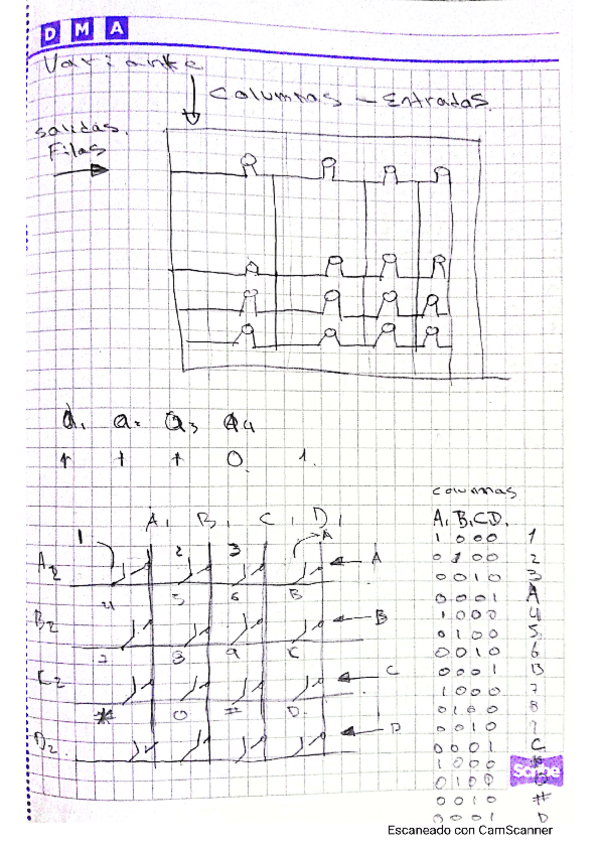 D M A
Variante
Columnas - Entradas.
salidas.
Filas
a1 a2 a3 a4
1 1 1 0 1.
columnas
A1 B1 C1 D1
A, B, C D.
1
2
3
A
A
A2
1 0 0 0 1
0 1 0 0 2
0 0 1 0 3
0 0 0 1 A
4
5
6
B
B
B2
1 0 0 0 4
0 1 0 0 5
0 0 1 0 6
0 0 0 1 B
7
8
9
C
C
C2
1 0 0 0 7
0 1 0 0 8
0 0 1 0 9
0 0 0 1 C
*
0
#
D
D
D2
1 0 0 0 *
0 1 0 0
0 0 1 0 #
0 0 0 1 D
Scribe
Escaneado con CamScanner